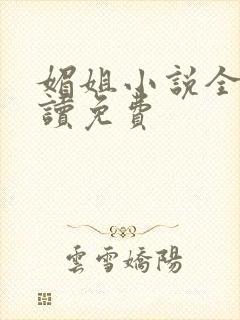 媚姐小说全
讀免費
雲雪嬌陽